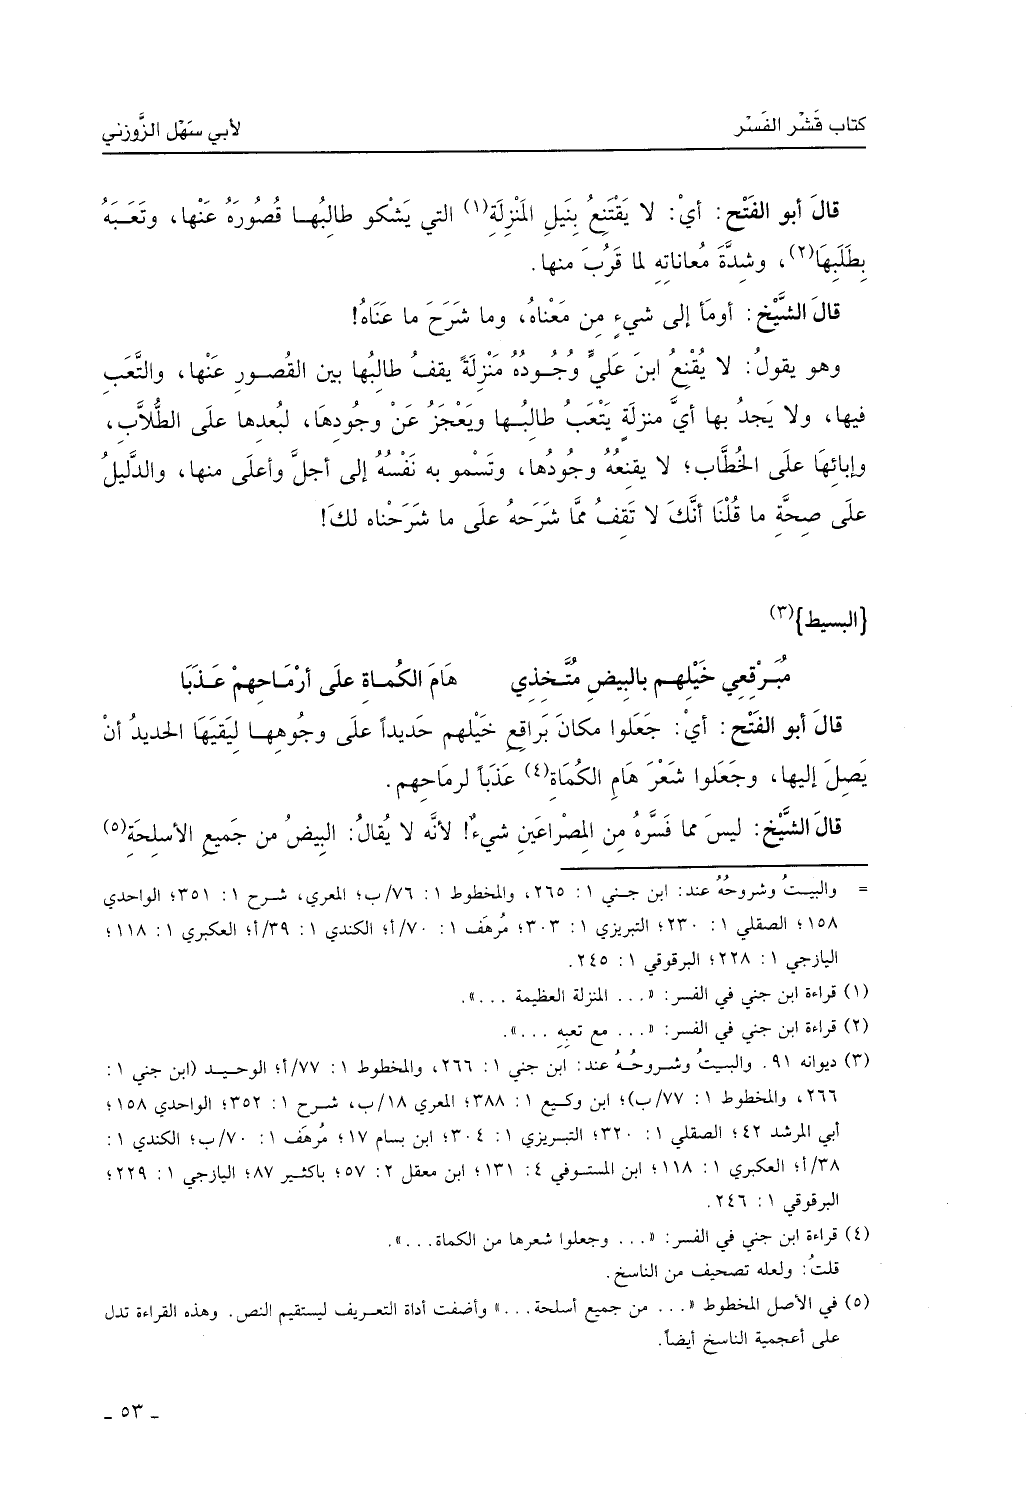 كتاب قَشْر الفَسْر
لأبي سَهْل الزَّوْزني
قالَ أبو الفَتْح: أيْ: لا يَقْتَنِعُ بِنَيلِ المَنْزِلَةِ(١) التي يَشْكو طالِبُهـا قُصُورَهُ عَنْها، وتَعَـبَهُ
بِطَلَبِهَا(٢)، وشِدَّةَ مُعاناتِهِ لما قَرُبَ منها.
قالَ الشَّيْخ: أومَأ إلى شيءٍ مِن مَعْناهُ، وما شَرَحَ ما عَنَاهُ!
وهو يقولُ: لا يُقْنِعُ ابنَ عَليٍّ وُجُـودُهُ مَنْزِلَةً يقفُ طالِبُها بين القُصـور عَنْها، والتَّعَبِ
فيها، ولا يَجدُ بها أيَّ منزلَةٍ يَتْعَبُ طالِبُـها ويَعْجَزُ عَنْ وجُودِهَا، لبُعدِها علَى الطُّلاَّبِ،
وإبائِهَا علَى الخُطَّاب؛ لا يقنعُهُ وجُودُها، وتَسْمو به نَفْسُهُ إلى أجلَّ وأعلَى منها، والدَّليلُ
علَى صِحَّةِ ما قُلْنَا أنَّكَ لا تَقِفُ ممَّا شَرَحهُ علَى ما شرَحْناه لكَ!
{البسيط}(٣)
مُبَـرْقِعي خَيْلِهـم بالبيضِ مُتَّـخِذي هَامَ الكُمـاةِ علَى أرْمَـاحِهمْ عَـذَبَا
قالَ أبو الفَتْح: أيْ: جَعَلوا مكانَ بَراقِعِ خَيْلهم حَديداً علَى وجُوهِهـا لِيَقيَهَا الحديدُ أنْ
يَصِلَ إليها، وجَعَلوا شَعْرَ هَامِ الكُمَاةِ(٤) عَذَباً لرمَاحِهم.
قالَ الشَّيْخ: ليسَ مما فَسَّرَهُ مِن المِصْراعَينِ شيءٌ! لأنَّه لا يُقالُ: البيضُ من جَميعِ الأسلِحَةِ(٥)
= والبيـتُ وشروحُهُ عند: ابن جـني ١: ٢٦٥، والمخطوط ١: ٧٦/ب؛ المعري، شـرح ١: ٣٥١؛ الواحدي
١٥٨؛ الصقلي ١: ٢٣٠؛ التبريزي ١: ٣٠٣؛ مُرهَف ١: ٧٠/أ؛ الكندي ١: ٣٩/أ؛ العكبري ١: ١١٨؛
اليازجي ١: ٢٢٨؛ البرقوقي ١: ٢٤٥.
(١) قراءة ابن جني في الفسر: «... المنزلة العظيمة ...».
(٢) قراءة ابن جني في الفسر: «... مع تعبِهِ ...».
(٣) ديوانه ٩١. والبـيتُ وشـروحُـهُ عند: ابن جني ١: ٢٦٦، والمخطوط ١: ٧٧/أ؛ الوحيـد (ابن جني ١:
٢٦٦، والمخطوط ١: ٧٧/ب)؛ ابن وكـيع ١: ٣٨٨؛ المعري ١٨/ب، شـرح ١: ٣٥٢؛ الواحدي ١٥٨؛
أبي المرشد ٤٢؛ الصقلي ١: ٣٢٠؛ التبـريزي ١: ٣٠٤؛ ابن بسام ١٧؛ مُرهَف ١: ٧٠/ب؛ الكندي ١:
٣٨/أ؛ العكبري ١: ١١٨؛ ابن المستـوفي ٤: ١٣١؛ ابن معقل ٢: ٥٧؛ باكثـير ٨٧؛ اليازجي ١: ٢٢٩؛
البرقوقي ١: ٢٤٦.
(٤) قراءة ابن جني في الفسر: «... وجعلوا شعرها من الكماة...».
قلتُ: ولعله تصحيف من الناسخ.
(٥) في الأصل المخطوط «... من جميع أسلحة...» وأضفت أداة التعـريف ليستقيم النص. وهذه القراءة تدل
على أعجمية الناسخ أيضاً.
ـ ٥٣ ـ